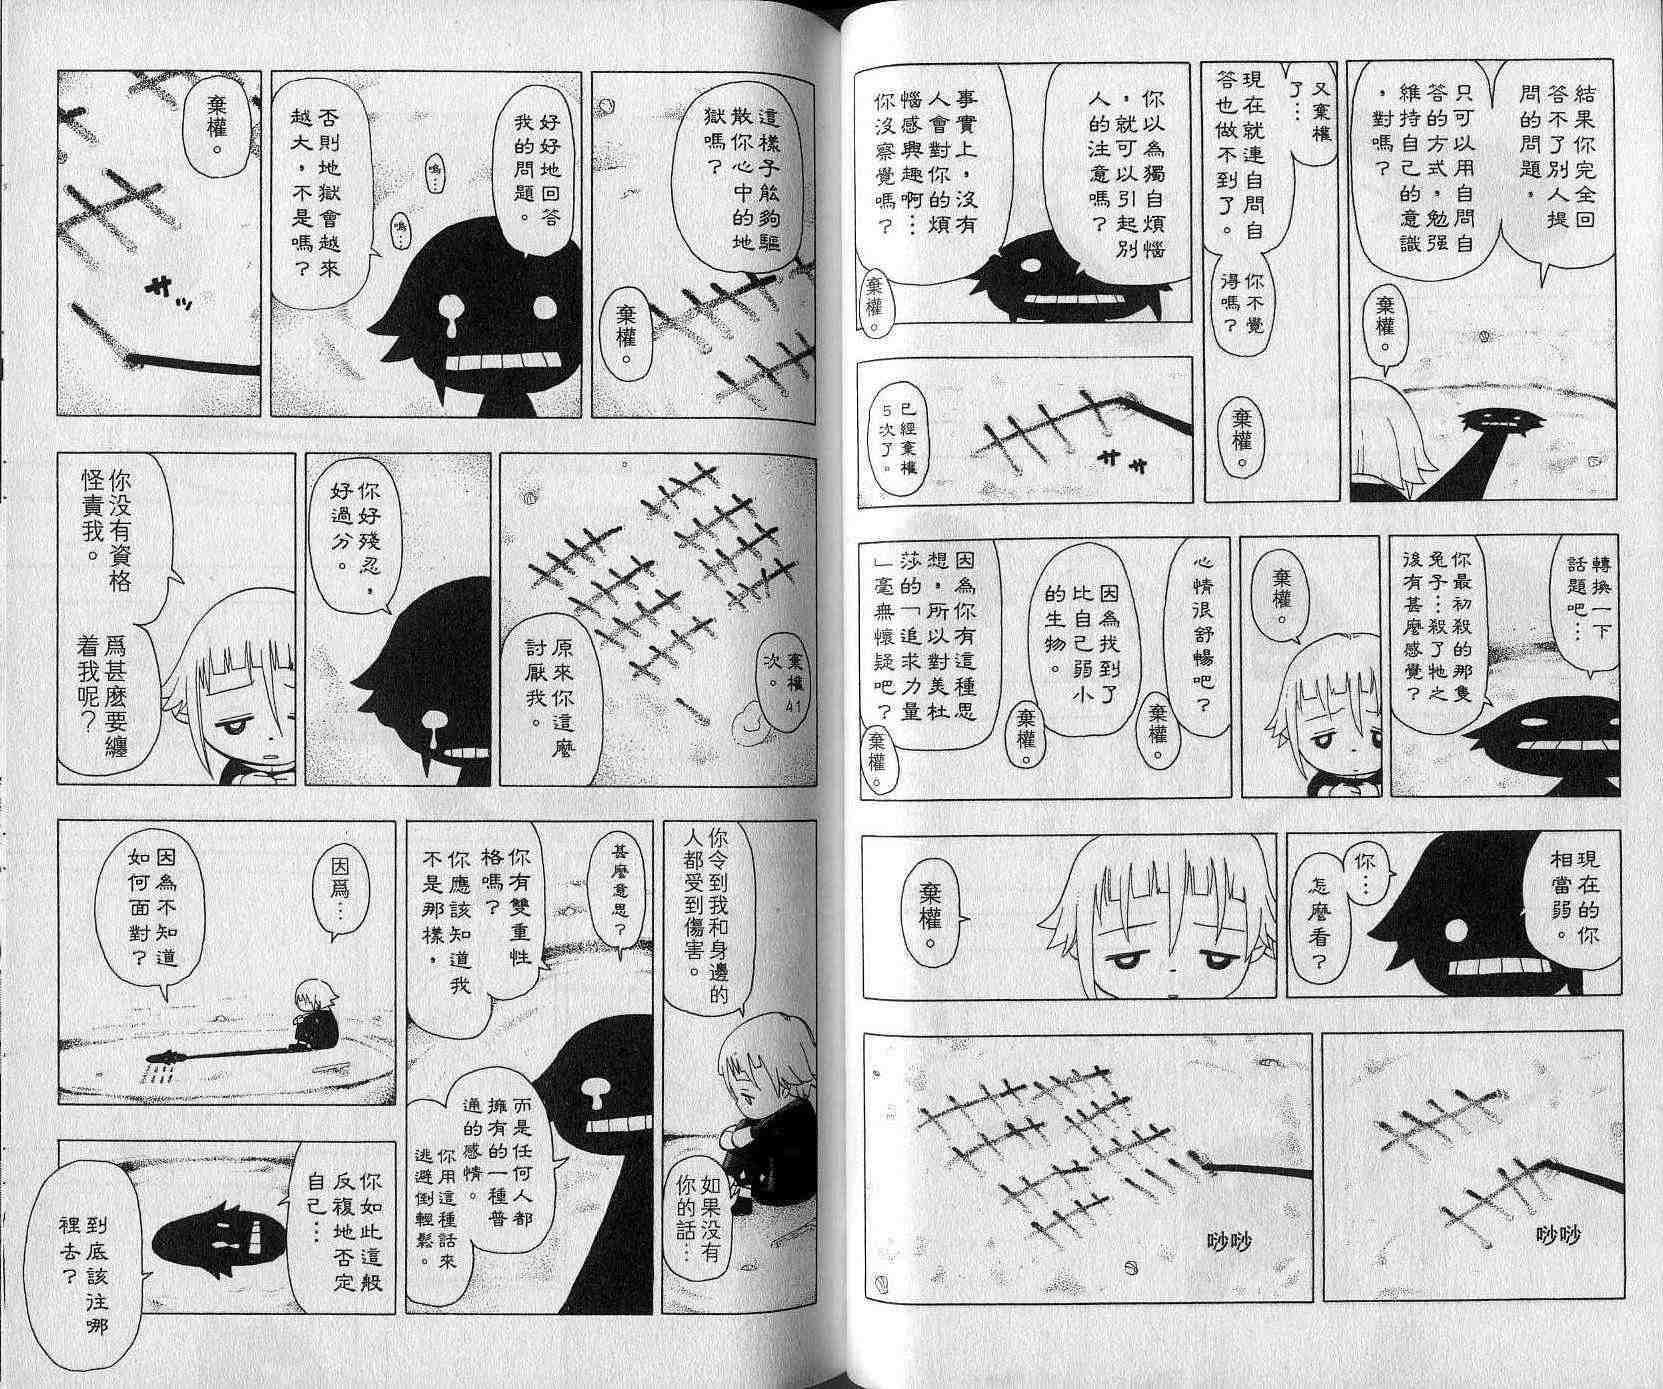 結果你完全回
答不了別人提
問的問題，
只可以用自問自
答的方式，勉强
維持自己的意識
，對嗎？
棄權。
又棄權
了…
現在就連自問自
答也做不到了。
你不覺
得嗎？
棄權。
你以為獨自煩惱
，就可以引起別
人的注意嗎？
事實上，沒有
人會對你的煩
惱感興趣啊…
你沒察覺嗎？
棄權。
已經棄權
5次了。
ササ
轉換一下
話題吧…
你最初殺的那隻
兔子…殺了牠之
後有甚麼感覺？
棄權。
心情很舒暢吧？
棄權。
因為找到了
比自己弱小
的生物。
棄權。
因為你有這種思
想，所以對美杜
莎的「追求力量
」毫無懷疑吧？
棄權。
現在的你
相當弱。
你…
怎麼看？
棄權。
唦唦
唦唦
這樣子能夠驅
散你心中的地
獄嗎？
棄權。
好好地回答
我的問題。
嗚…
嗚…
否則地獄會越來
越大，不是嗎？
棄權。
サッ
棄權41
次。
原來你這麼
討厭我。
你好殘忍，
好過分。
你没有資格
怪責我。
爲甚麽要纏
着我呢？
你令到我和身邊的
人都受到傷害。
如果没有
你的話…
甚麼意思？
你有雙重性
格嗎？
你應該知道我
不是那樣，
而是任何人都
擁有的一種普
通的感情。
你用這種話來
逃避倒輕鬆。
因爲…
因為不知道
如何面對？
你如此這般
反複地否定
自己…
到底該往哪
裡去？